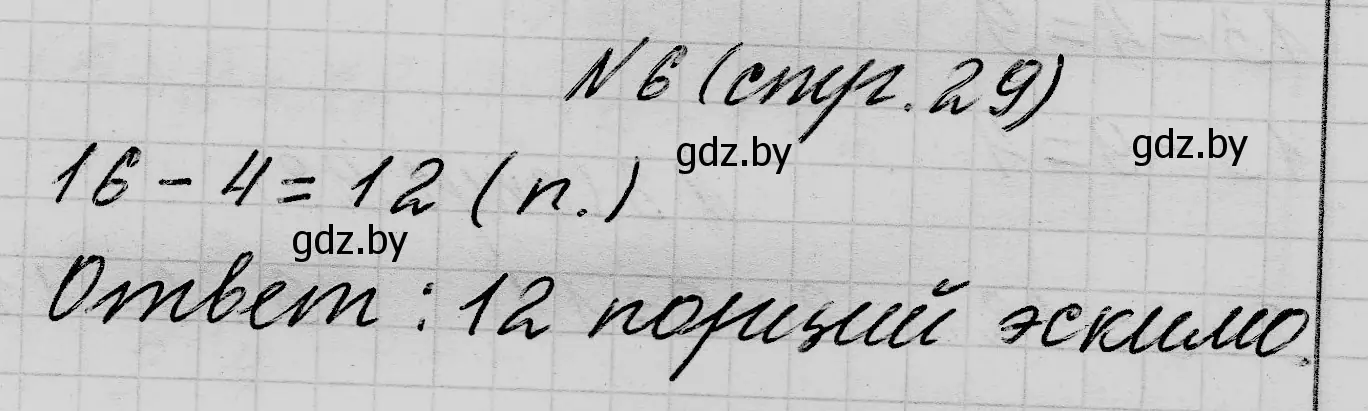 №6 (стр. 29)
gdz.by
gdz.by
16 - 4 = 12 (п.)
gdz.by
Ответ: 12 порций эскимо.